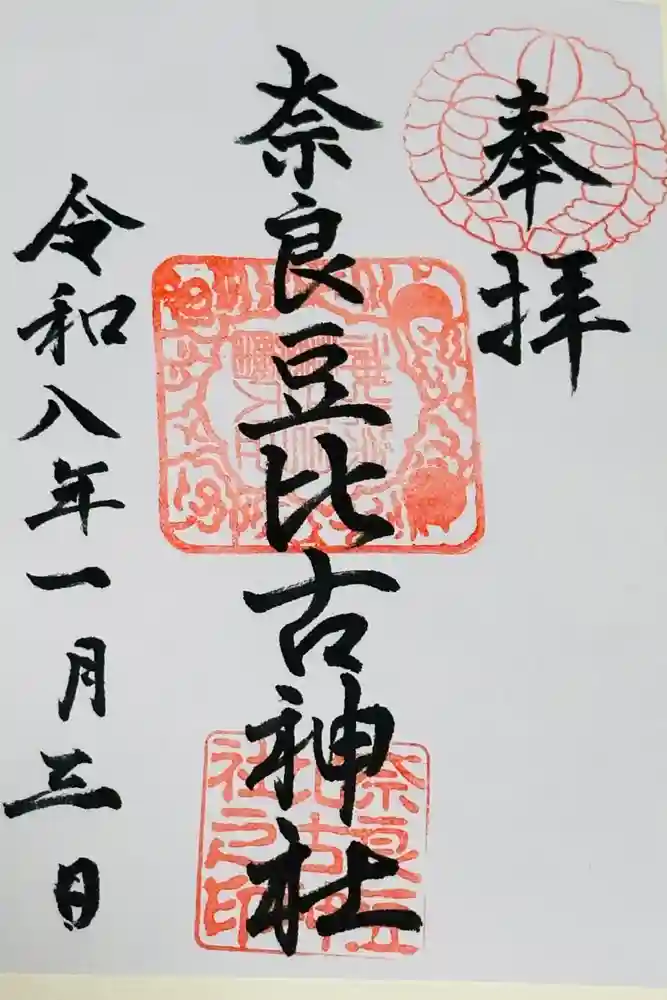 奉拝
奈良豆比古神社
奈良豆
比古神
社之印
令和八年一月三日